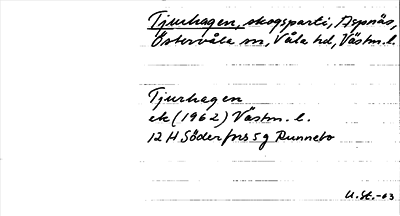 Tjurhagen, skogsparti, Aspnäs,
Östervåla sn, Våla hd, Västm. l.
Tjurhagen
ek (1962) Västm. l.
12 H Söderfors 5 g Runnebo
U. St. -63